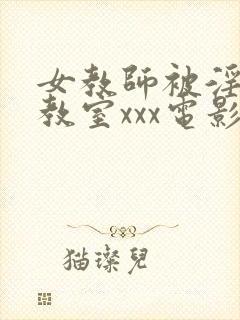 女教師被淫
教室xxx電影
猫璨兒